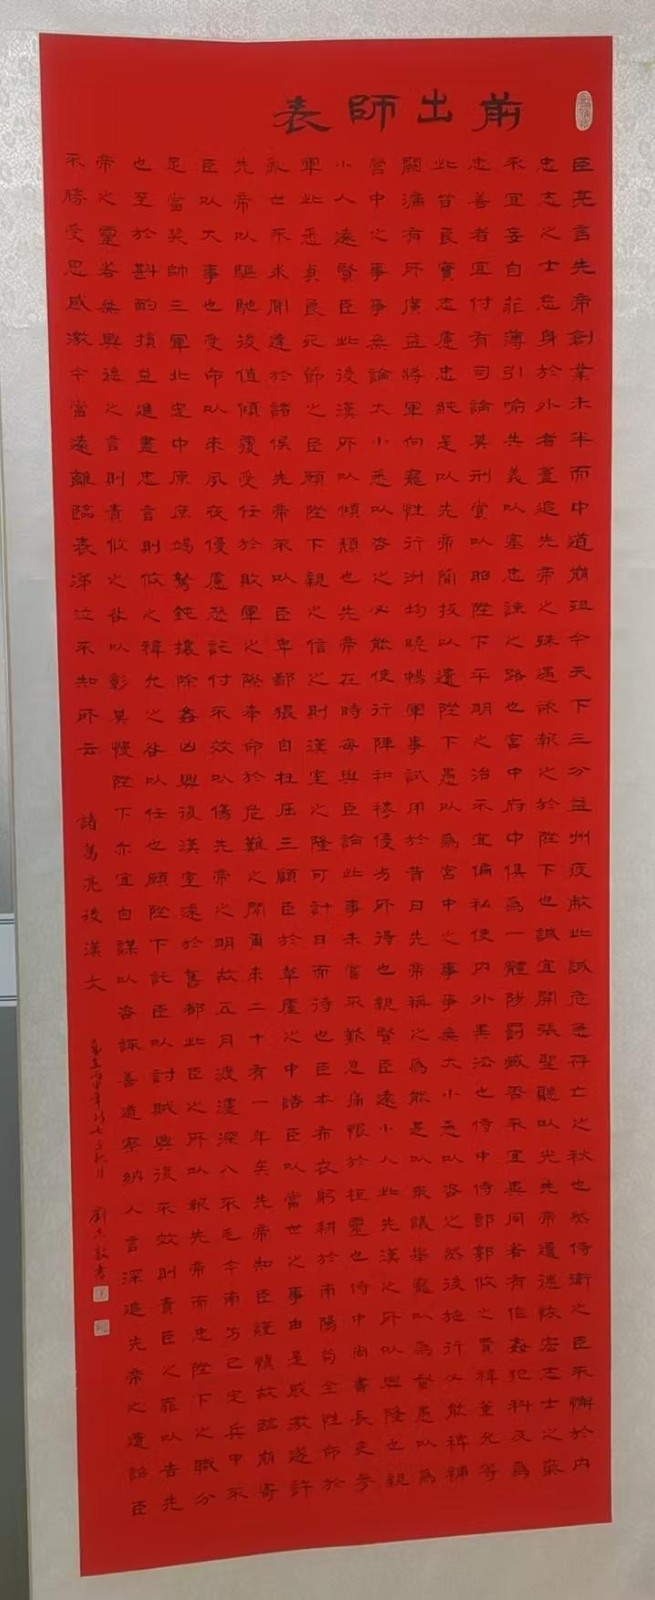 前出師表
臣亮言先帝創業未半而中道崩殂今天下三分益州疲敝此誠危急存亡之秋也然侍衛之臣不懈於內
忠志之士忘身於外者蓋追先帝之殊遇欲報之於陛下也誠宜開張聖聽以光先帝遺德恢宏志士之氣
不宜妄自菲薄引喻失義以塞忠諫之路也宮中府中俱為一體陟罰臧否不宜異同若有作姦犯科及為
忠善者宜付有司論其刑賞以昭陛下平明之治不宜偏私使內外異法也侍中侍郎郭攸之費禕董允等
此皆良實志慮忠純是以先帝簡拔以遺陛下愚以為宮中之事事無大小悉以咨之然後施行必能裨補
闕漏有所廣益將軍向寵性行淑均曉暢軍事試用於昔日先帝稱之為能是以眾議舉寵以為督愚以為
營中之事事無論大小悉以咨之必能使行陣和穆優劣所得也親賢臣遠小人此先漢之所以興隆也親
小人遠賢臣此後漢所以傾頹也先帝在時每與臣論此事未嘗不歎息痛恨於桓靈也侍中尚書長史參
軍此悉貞良死節之臣願陛下親之信之則漢室之隆可計日而待也臣本布衣躬耕於南陽苟全性命於
亂世不求聞達於諸侯先帝不以臣卑鄙猥自枉屈三顧臣於草廬之中諮臣以當世之事由是感激遂許
先帝以驅馳後值傾覆受任於敗軍之際奉命於危難之間爾來二十有一年矣先帝知臣謹慎故臨崩寄
臣以大事也受命以來夙夜優慮恐託付不效以傷先帝之明故五月渡瀘深入不毛今南方已定兵甲不
足當奬帥三軍北定中原庶竭駑鈍攘除姦凶興復漢室還於舊都此臣之所以報先帝而忠陛下之職分
也至於斟酌損益進盡忠言則攸之禕允之咎以任也願陛下託臣以討賊興復不效則責臣之罪以告先
帝之靈若無興德之言則責攸之咎以彰其慢陛下亦宜自謀以咨諏善道察納人言深追先帝之遺詔臣
不勝受恩感激今當遠離臨表涕泣不知所云 諸葛亮後漢文